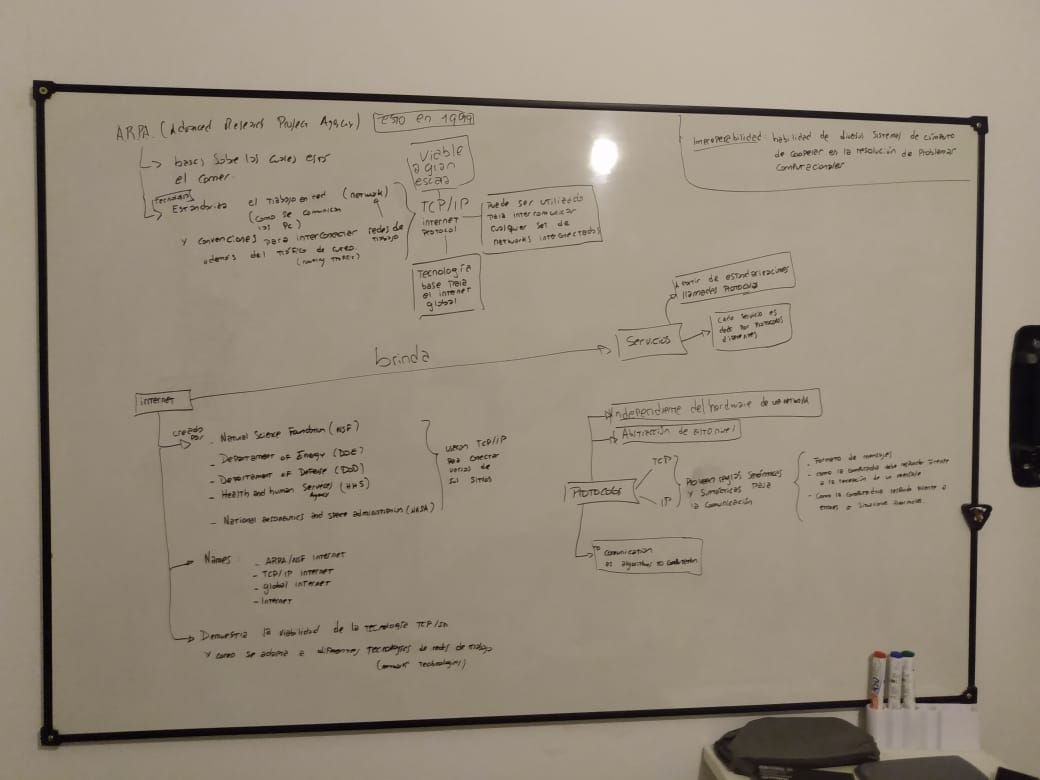 ARPA (Advanced Research Project Agency)
Esto en 1999
bases sobre las cuales
el
Tecnología
Estandariza el trabajo en red (network)
(como se comunican
las Pc)
y convenciones para interconectar redes de
trabajo
además del tráfico de
(routing traffic)
Viable
a gran
escala
TCP/IP
internet
Protocol
Puede ser utilizado
para intercomunicar
cualquier set de
networks interconectados
Tecnología
base para
el internet
global
Interoperabilidad: habilidad de diversos sistemas de cómputo
de cooperar en la resolución de Problemas
computacionales
brinda
Servicios
A partir de estandarizaciones
llamadas Protocolo
Cada servicio es
dado por Protocolos
diferentes
internet
creado
por
- Natural Science Foundation (NSF)
- Departament of Energy (DOE)
- Departament of Defense (DOD)
- Health and human Services (HHS)
Agency
- National aeronautics and space administration (NASA)
usaron TCP/IP
para conectar
varios de
sus sitios
Names:
- ARPA/NSF internet
- TCP/IP internet
- global internet
- Internet
Demuestra la viabilidad de la tecnología TCP/IP
y como se adapta a diferentes tecnologías de redes de trabajo
(network technologies)
Independiente del hardware de
Abstracción de alto nivel
Protocolos
TCP
IP
Proveen reglas semánticas
y sintácticas para
la comunicación
- Formato de mensajes
- Como la computadora debe responder frente
a la recepción de un mensaje
- Como la computadora responde frente a
errores o situaciones anormales
to
comunication
as algorithms to computation